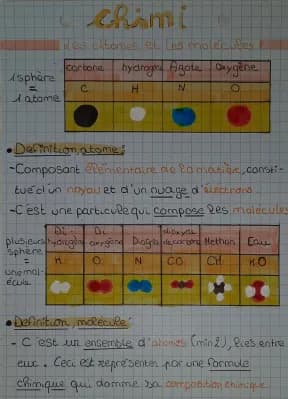 chimi
Les Atomes et les molécules
carbone hydrogène Azote Oxygène
1 sphère
=
1 atome
C H N O
• Definition, atome:
- Composant élémentaire de la matière, consti-
tué d'un noyau et d'un nuage d'électrons.
- C'est une particule qui compose les molécules
plusieurs
sphère
=
une mol-
écule
Di- hydrogène Di oxygène Diazote dioxyde de carbone Méthan Eau
H O N CO CH H O
• Definition, molécule:
- C'est un ensemble d'atomes (min 2), liés entre
eux. Ceci est représenter par une formule
chimique qui domme sa composition chimique.